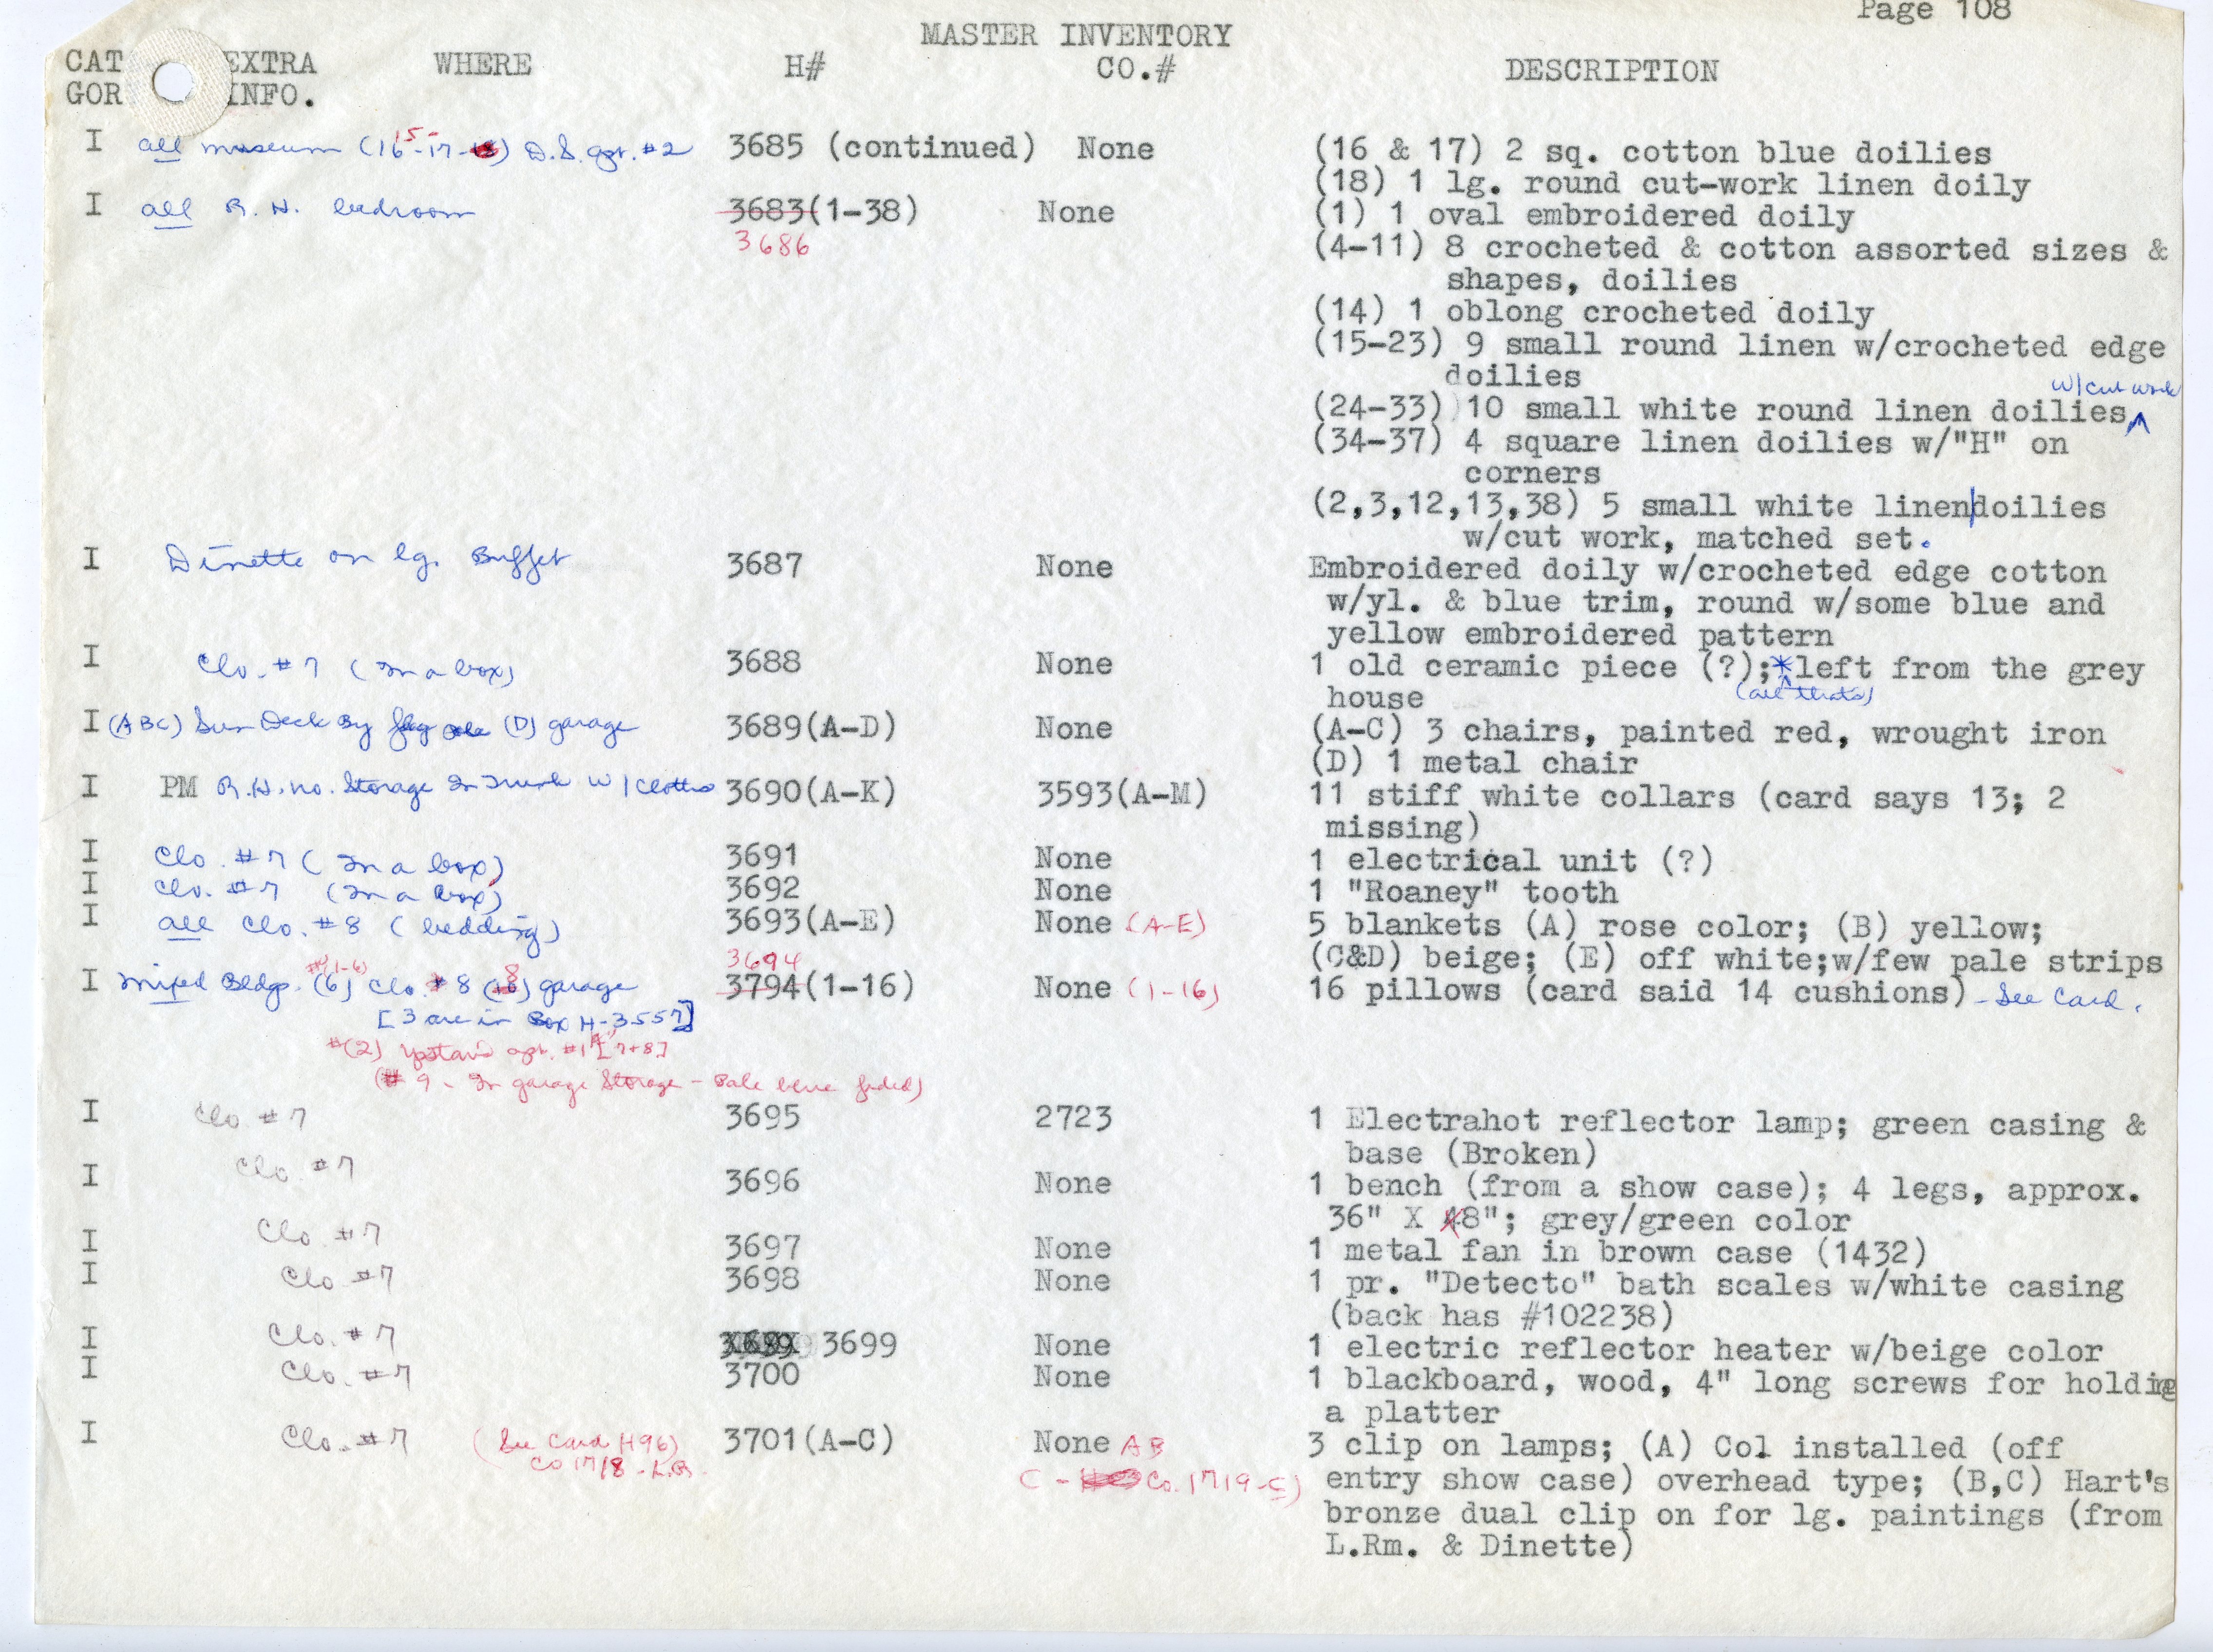 Page 108
MASTER INVENTORY
CAT EXTRA WHERE H# CO.# DESCRIPTION
GOR INFO.
I all museum (16-17-18) D.S. apt. #2 3685 (continued) None (16 & 17) 2 sq. cotton blue doilies
15-
(18) 1 lg. round cut-work linen doily
I all R.H. bedroom 3683(1-38) None (1) 1 oval embroidered doily
3686 (4-11) 8 crocheted & cotton assorted sizes &
shapes, doilies
(14) 1 oblong crocheted doily
(15-23) 9 small round linen w/crocheted edge
doilies
w/cut work
(24-33) 10 small white round linen doilies^
(34-37) 4 square linen doilies w/"H" on
corners
(2,3,12,13,38) 5 small white linen|doilies
w/cut work, matched set.
I Dinette on lg. Buffet 3687 None Embroidered doily w/crocheted edge cotton
w/yl. & blue trim, round w/some blue and
yellow embroidered pattern
I Clo. #7 (In a box) 3688 None 1 old ceramic piece (?);*left from the grey
(all thats)
house
I (ABC) Sun Deck By flag pole (D) garage 3689(A-D) None (A-C) 3 chairs, painted red, wrought iron
(D) 1 metal chair
I PM R.H. no. Storage In Trunk w/clothes 3690(A-K) 3593(A-M) 11 stiff white collars (card says 13; 2
missing)
I Clo. #7 (In a box) 3691 None 1 electrical unit (?)
I Clo. #7 (In a box) 3692 None 1 "Roaney" tooth
I all Clo. #8 (bedding) 3693(A-E) None (A-E) 5 blankets (A) rose color; (B) yellow;
3694 (C&D) beige; (E) off white;w/few pale strips
#(1-6)
I mixed Bldgs. (6) Clo. #8 (8) garage 3794(1-16) None (1-16) 16 pillows (card said 14 cushions) - See Card.
[3 are in Box H-3557]
#(2) Upstairs apt. #1 [7+8]
(#9 - In garage Storage - Pale blue faded)
I Clo #7 3695 2723 1 Electrahot reflector lamp; green casing &
base (Broken)
I Clo. #7 3696 None 1 bench (from a show case); 4 legs, approx.
36" X 48"; grey/green color
I Clo. #7 3697 None 1 metal fan in brown case (1432)
I Clo #7 3698 None 1 pr. "Detecto" bath scales w/white casing
(back has #102238)
I Clo. #7 3699 None 1 electric reflector heater w/beige color
I Clo. #7 3700 None 1 blackboard, wood, 4" long screws for holding
a platter
I Clo. #7 (See Card H96) 3701(A-C) None AB 3 clip on lamps; (A) Col installed (off
Co 1718 - L.R. C - Co. 1719-C) entry show case) overhead type; (B,C) Hart's
bronze dual clip on for lg. paintings (from
L.Rm. & Dinette)